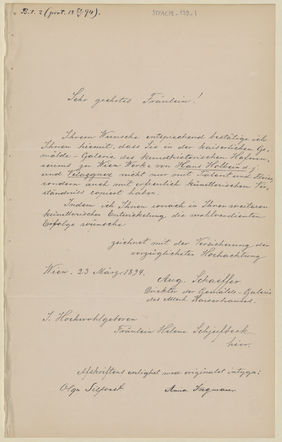 Sehr geehrtes Fräulein!
Ihrem Wunsche entsprechend bestätige ich
Ihnen hiemit, dass Sie in der kaiserlichen Ge-
mälde-Galerie des kunsthistorischen Hofmu-
seums zu Wien Werke von Hans Holbein j.
und Velazquez nicht nur mit Talent und
sondern auch mit erfreulich künstlerischen Ver-
ständniss copiert haben.
Indem ich Ihnen sonach in Ihrer weiteren
künstlerischen Entwickelung die wohlverdienten
Erfolge wünsche
zeichnet mit der Versicherung der
vorzüglichsten Hochachtung
Wien. 23 März 1894.
Aug. Schaeffer
Direktor der Gemälde-Galerie
des Allerh. Kaiserhauses.
I. Hochwohlgeboren
Fräulein Helene Schjerfbeck
hier.
Afskriftens enlighet med originalet intyga:
Olga
Anna